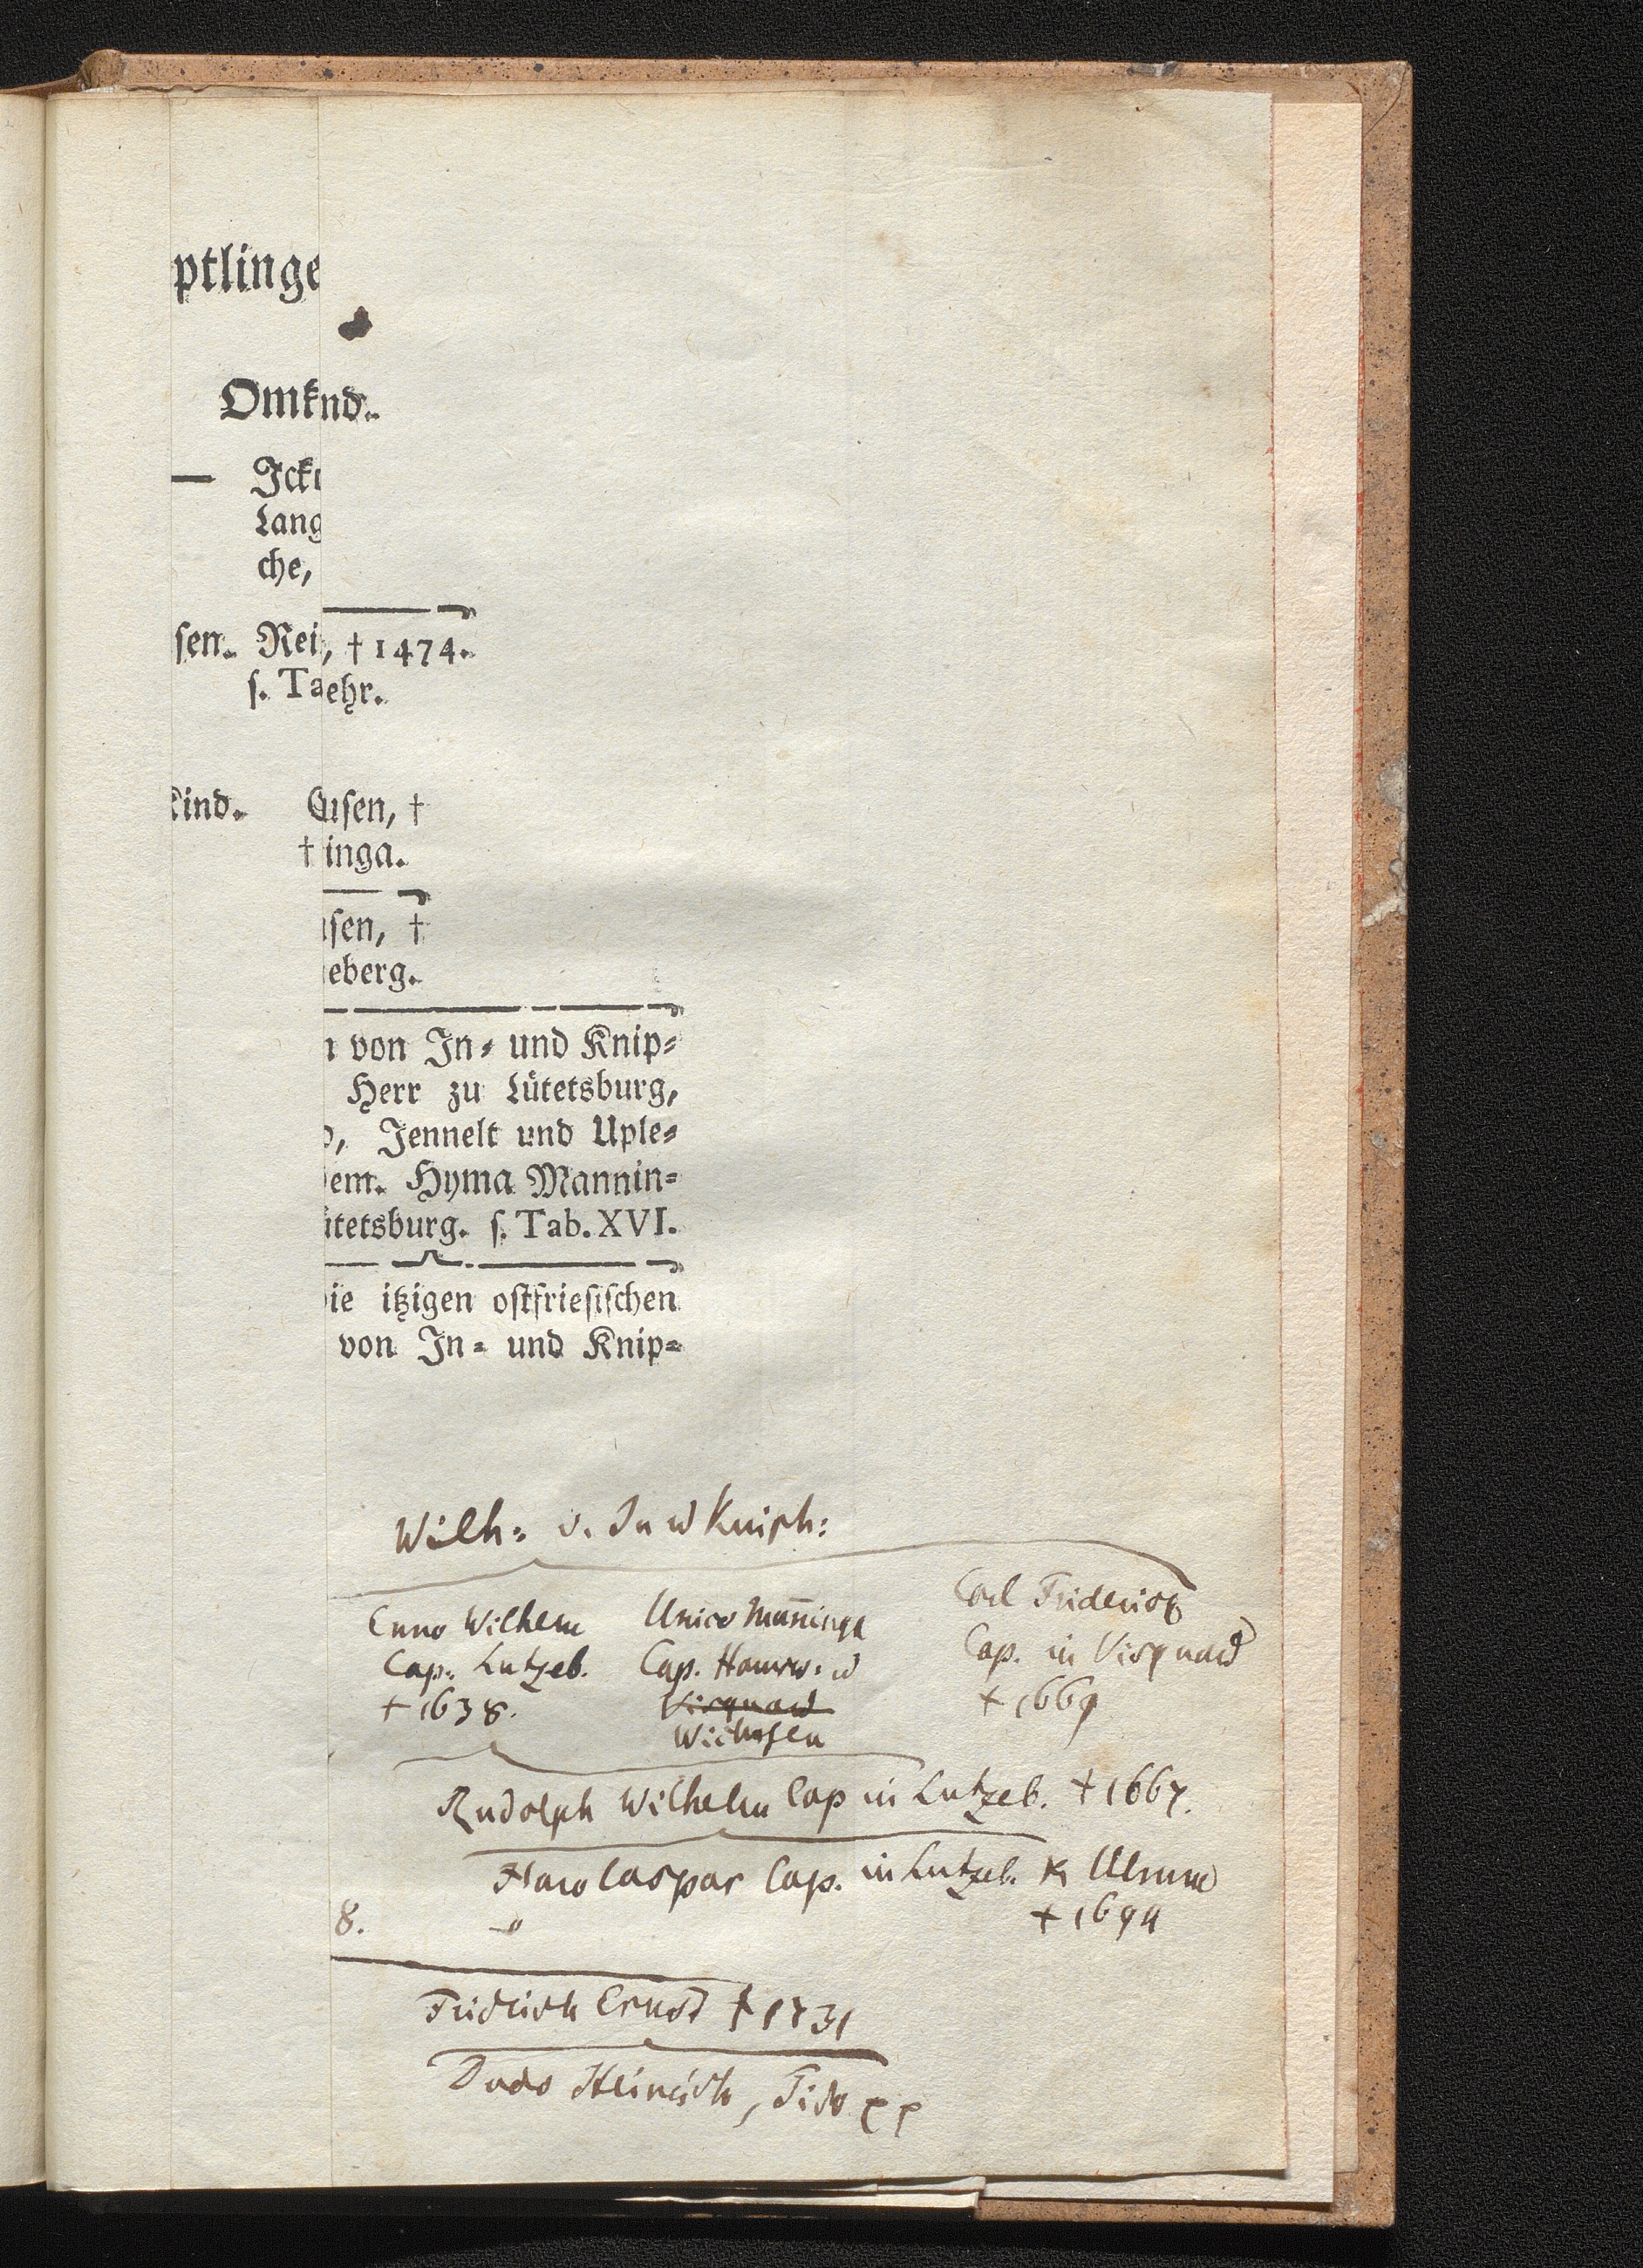 ptlinge
Omknd.
— Jck
Lang
che,
sen. Rei, † 1474.
ſ. Taehr.
kind. uſen, †
† inga.
ſen, †
eberg.
von In- und Knip-
Herr zu Lütetsburg,
, Jennelt und Uple-
em. Hyma Mannin-
ütetsburg. ſ. Tab. XVI.
ie itzigen oſtfrieſiſchen
von In- und Knip-
Wilh: v. In u Kniph:
Enno Wilhelm Unico Man̄inga Carl Friderich
Cap. Lutzeb. Cap. Cap. in Visquard
† 1638. Visquard † 1669
Rudolph Wilhelm Cap in Lutzeb. † 1667.
Haro Caspar Cap. in Lutzeb.
8. † 1694
Fridrich Ernst † 1731
Dodo Heinrich, Fido pp